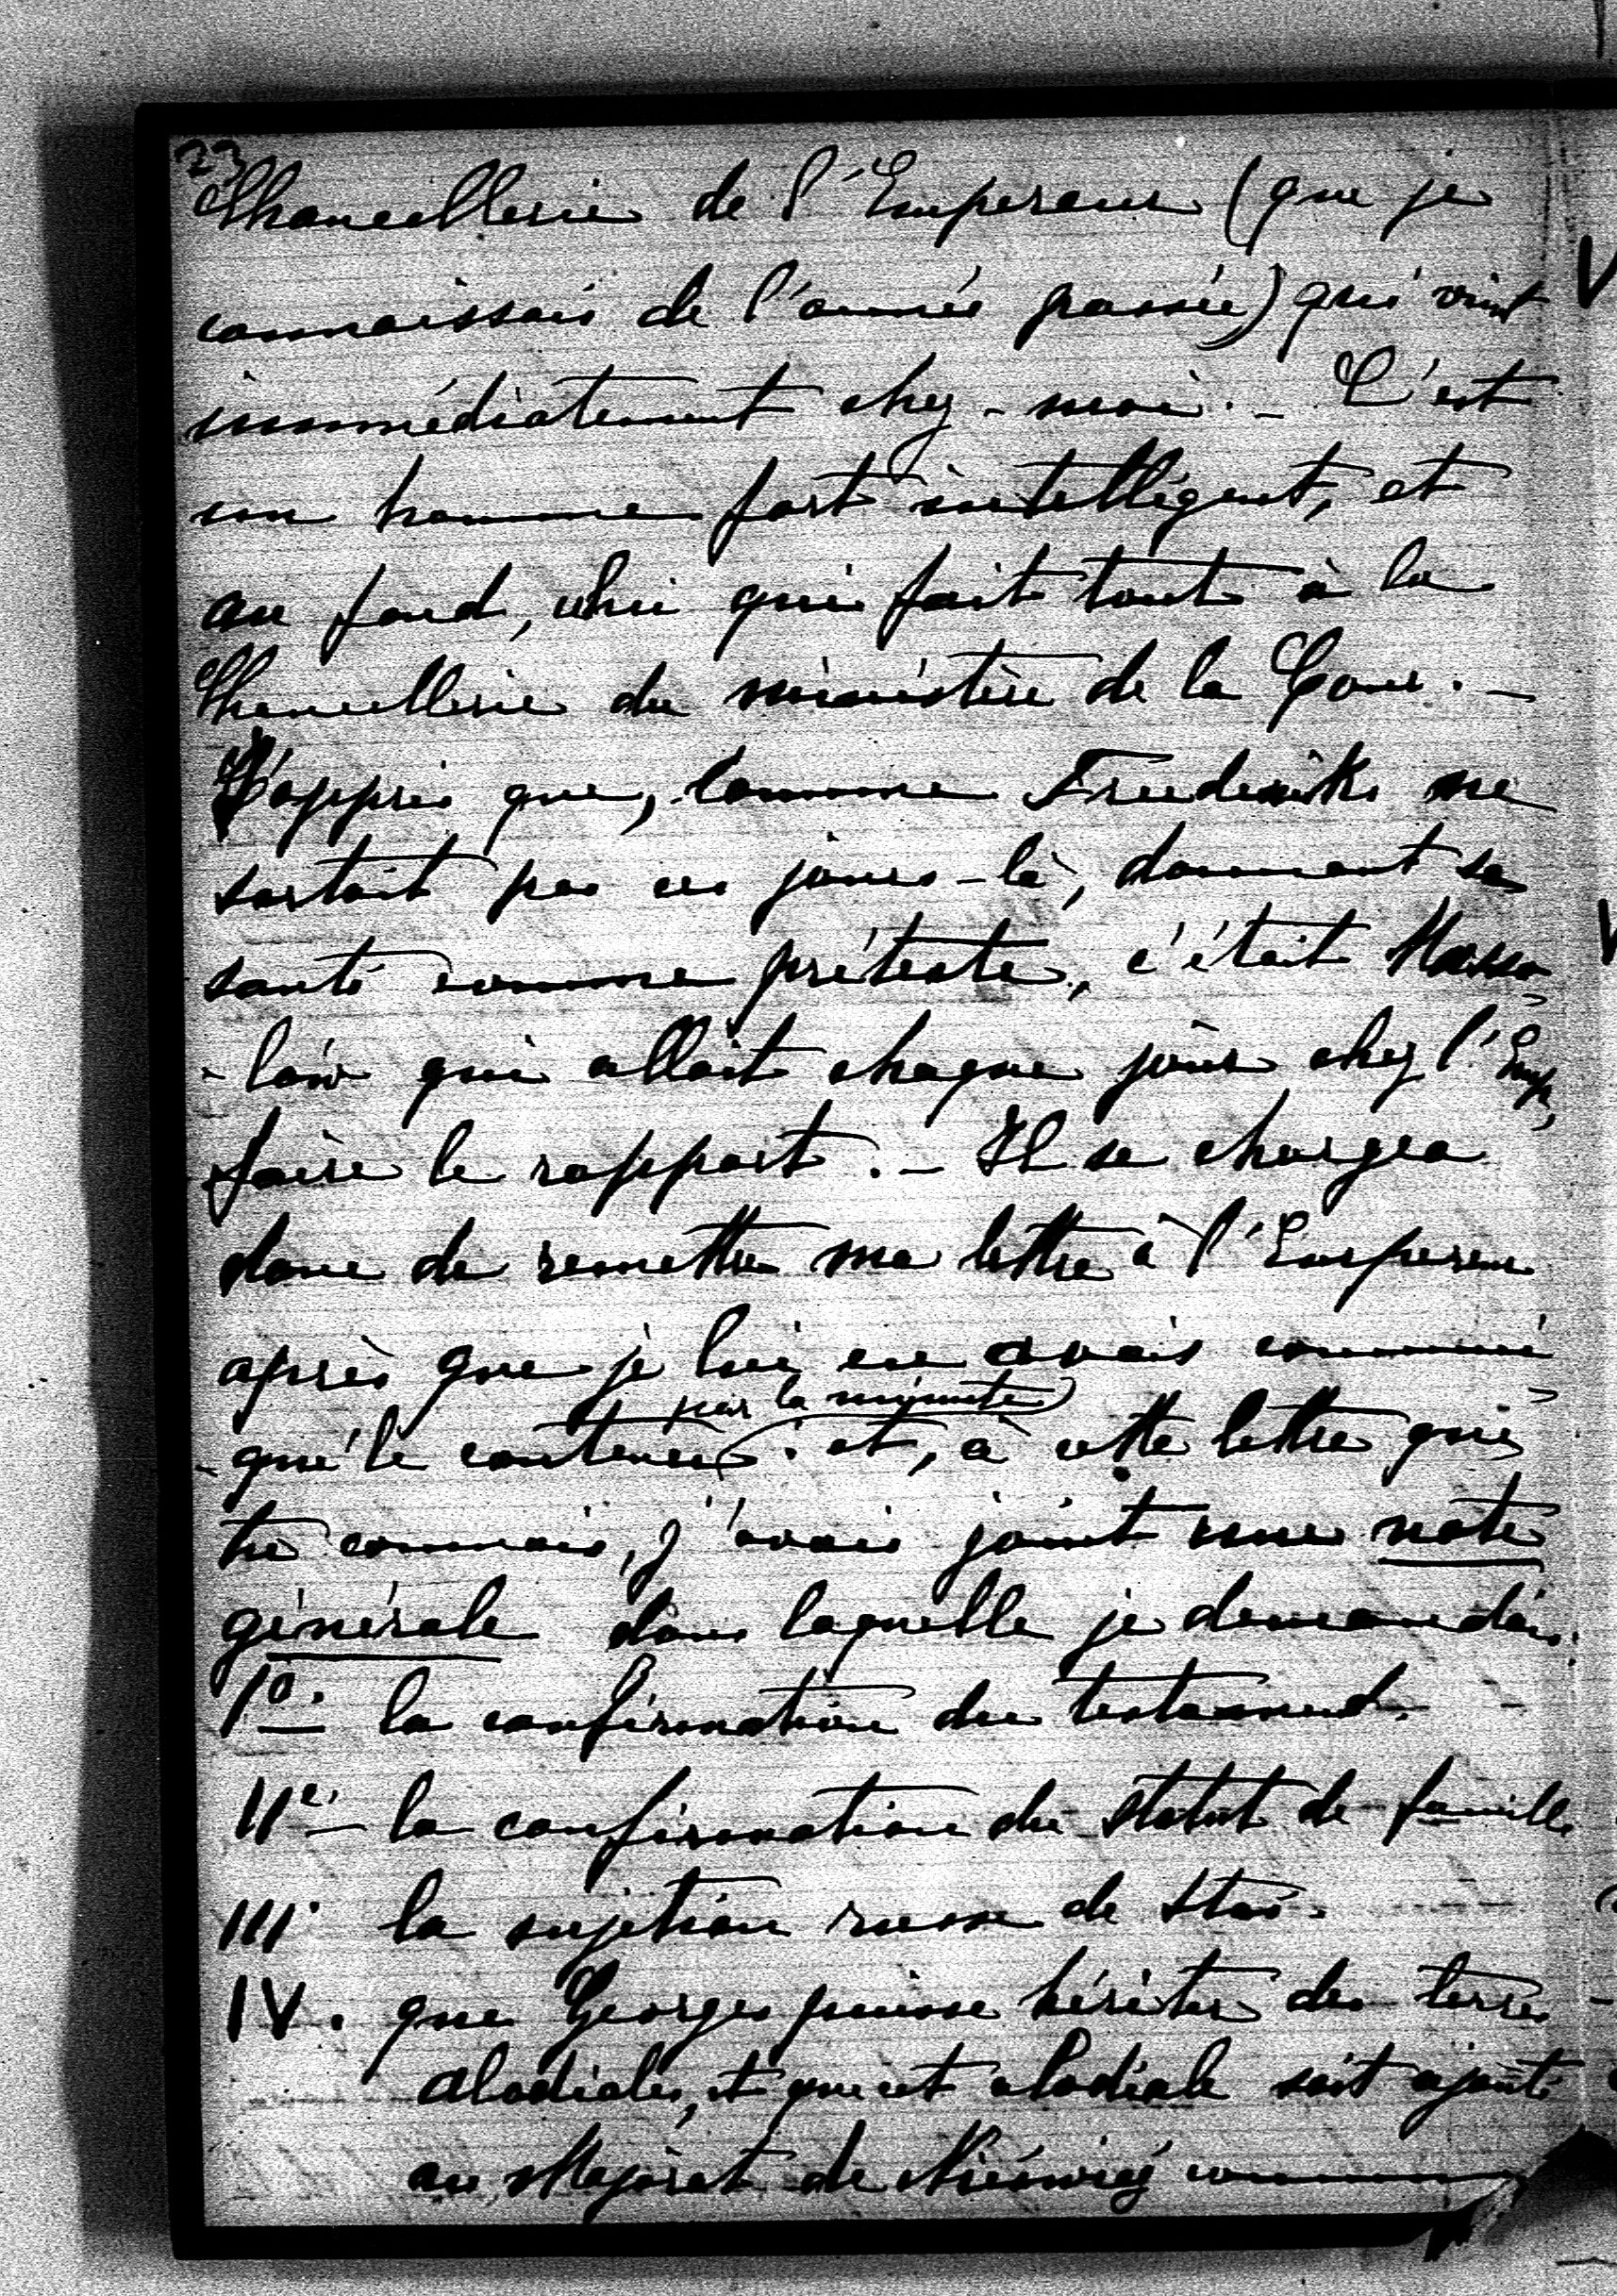 23
Chancellerie de l'Empereur (que je
connaissais de l'année passée) qui vint
immédiatement chez-moi. – C'est
un homme fort intelligent, et
au fond, celui qui fait tout à la
Chancellerie du ministère de la Cour. –
J'appris que, comme Freederiks ne
sortait pas ces jours-là, donnant sa
santé comme prétexte, c'était Masso-
-low qui allait chaque jour chez l'Emp,
faire le rapport. – Il se chargea
donc de remettre ma lettre à l'Empereur
après que je lui en avais communi-
par la minute
-qué le contenu . et, à cette lettre que
tu connais, j'avais joint une note
générale dans laquelle je demandais:
I° – la confirmation du testament.
II° – la confirmation du Statut de famille
III. la sujétion russe de Staś.
IV. que Georges puisse hériter des terres
alodiales, et que cet alodiale soit ajouté
au Majorat de Nieśwież comme